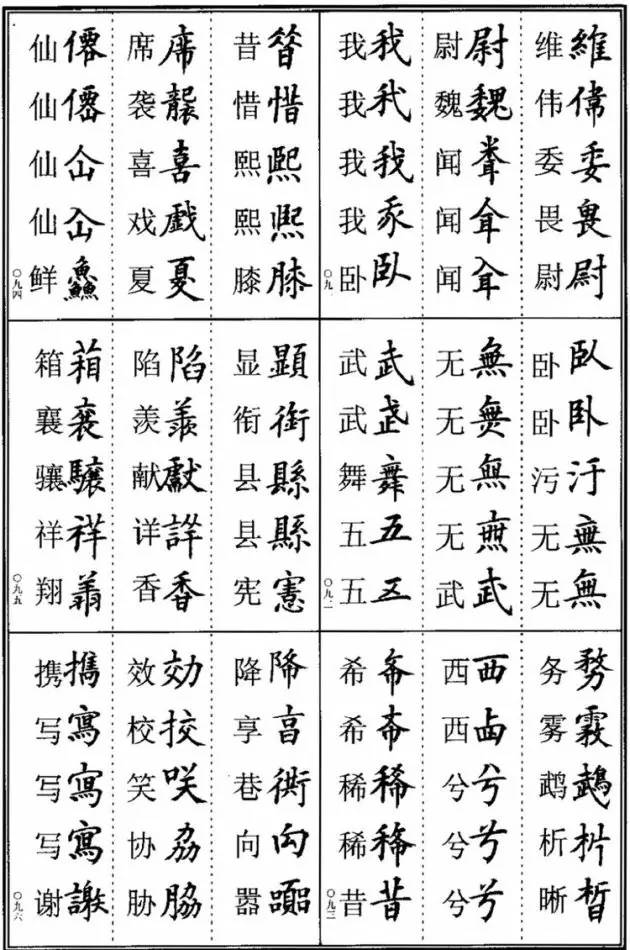 维維 伟偉 委委 畏畏 尉尉
尉尉 魏魏 闻 闻 闻
我我 我我 我我 我 卧臥
〇九一
卧臥 卧卧 污汙 无無 无無
无無 无無 无無 无無 武武
武武 武武 舞舞 五五 五五
〇九二
务務 雾霧 鹉鵡 析析 晰晳
西西 西卥 兮兮 兮兮 兮兮
希希 希希 稀稀 稀稀 昔昔
〇九三
昔 惜惜 熙熙 熙熙 膝膝
席席 袭襲 喜喜 戏戲 夏夏
仙僊 仙僊 仙仚 仙仚 鲜鱻
〇九四
显顯 衔銜 县縣 县縣 宪憲
陷陷 羡羨 献獻 详詳 香香
箱箱 襄襄 骧驤 祥祥 翔
〇九五
降降 享亯 巷衖 向向 嚣囂
效効 校挍 笑咲 协劦 胁脇
携攜 写寫 写寫 写寫 谢謝
〇九六